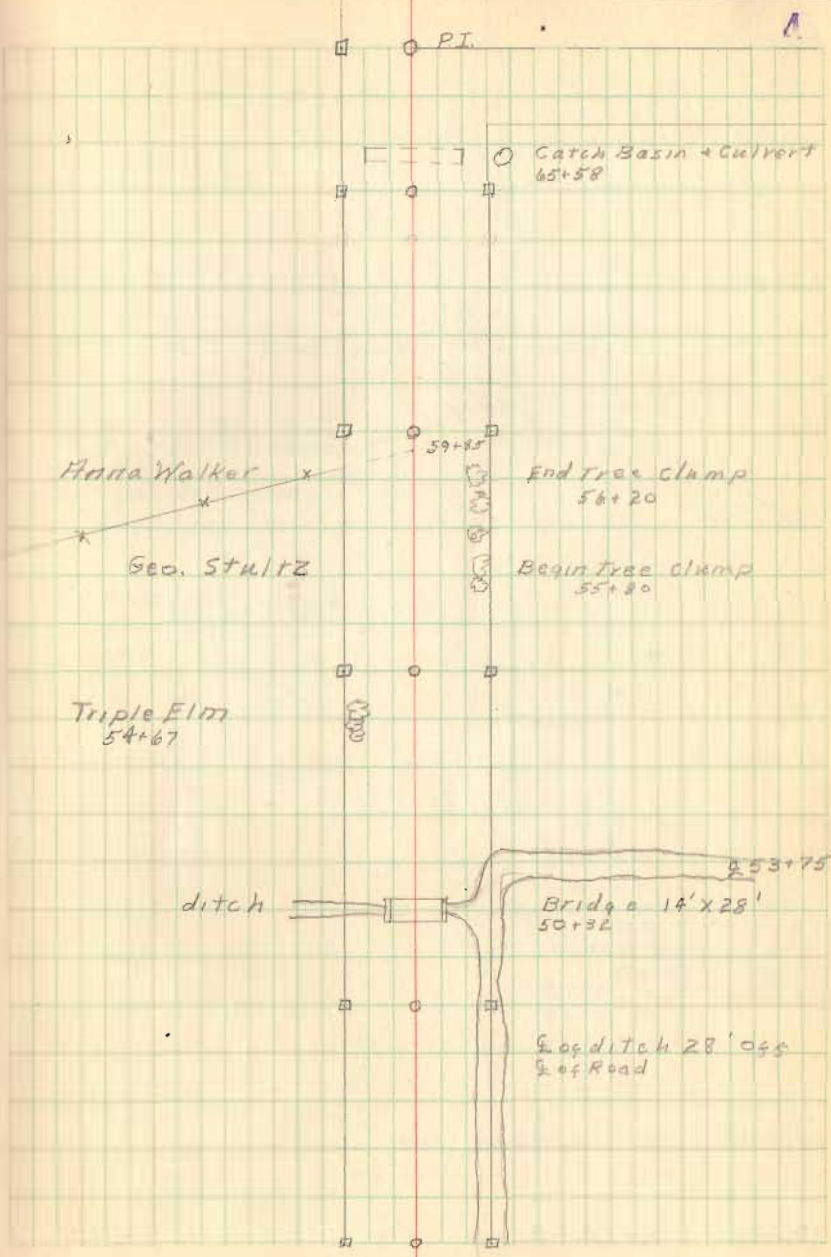 P.I.
Catch Basin + Culvert
65+58
59+85
Anna Walker
End Tree Clump
56+20
Geo. Stultz
Begin Tree Clump
55+80
Triple Elm
54+67
℄ 53+75
ditch
Bridge 14' X 28'
50+32
℄ of ditch 28' off
℄ of Road